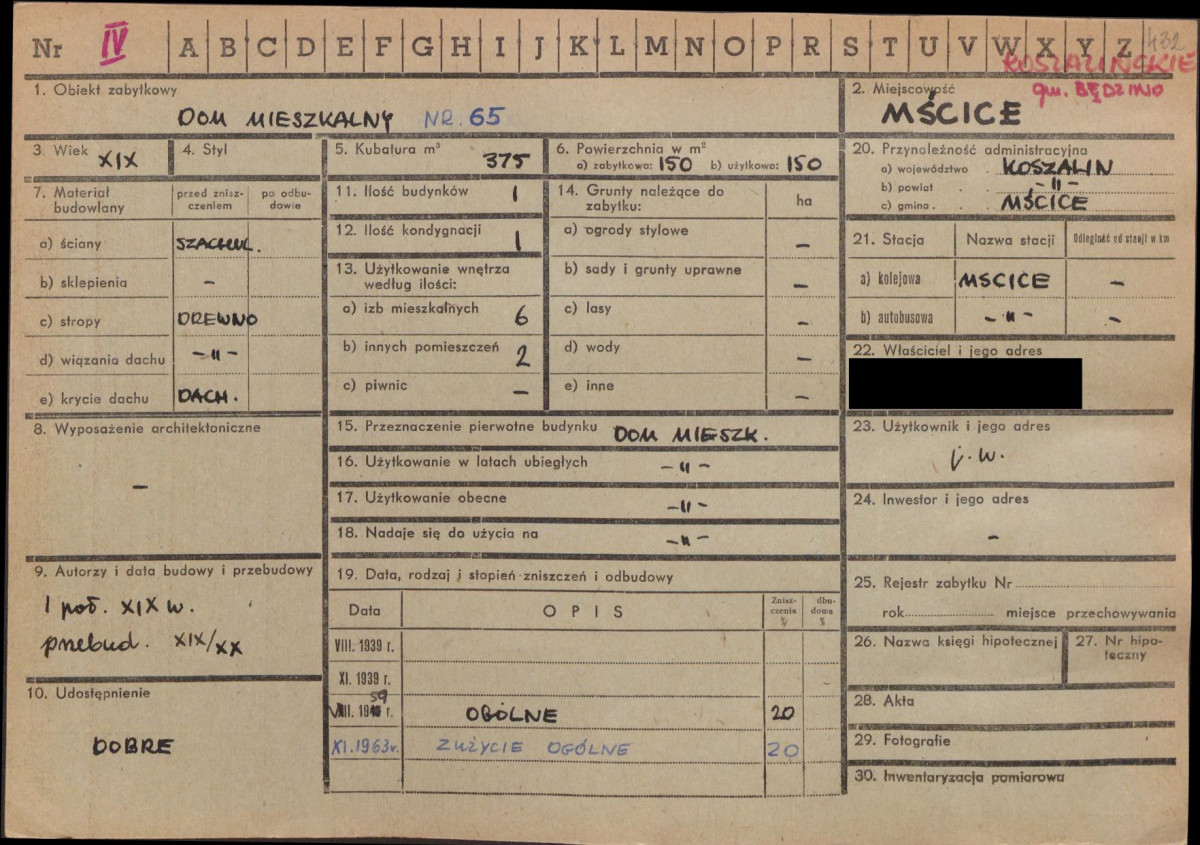 Nr IV A B C D E F G H I J K L M N O P R S T U V W X Y Z 432
KOSZALIŃSKIE
gm. BĘDZINO
1. Obiekt zabytkowy
DOM MIESZKALNY NR. 65
2. Miejscowość
MŚCICE
3. Wiek XIX
4. Styl
5. Kubatura m³ 375
6. Powierzchnia w m²
a) zabytkowa: 150 b) użytkowa: 150
20. Przynależność administracyjna
a) województwo . KOSZALIN
b) powiat . -"-
c) gmina . . MŚCICE
7. Materiał budowlany
przed zniszczeniem
po odbudowie
a) ściany SZACHUL.
b) sklepienia -
c) stropy DREWNO
d) wiązania dachu -"-
e) krycie dachu DACH.
11. Ilość budynków 1
12. Ilość kondygnacji 1
13. Użytkowanie wnętrza
według ilości:
a) izb mieszkalnych 6
b) innych pomieszczeń 2
c) piwnic -
14. Grunty należące do
zabytku: ha
a) ogrody stylowe -
b) sady i grunty uprawne -
c) lasy -
d) wody -
e) inne -
21. Stacja Nazwa stacji Odległość od stacji w km
a) kolejowa MSCICE -
b) autobusowa -"- -
22. Właściciel i jego adres
8. Wyposażenie architektoniczne
-
15. Przeznaczenie pierwotne budynku DOM MIESZK.
16. Użytkowanie w latach ubiegłych -"-
17. Użytkowanie obecne -"-
18. Nadaje się do użycia na -"-
23. Użytkownik i jego adres
j.w.
24. Inwestor i jego adres
-
9. Autorzy i data budowy i przebudowy
1 poł. XIX w.
przebud. XIX/XX
10. Udostępnienie
DOBRE
19. Data, rodzaj i stopień zniszczeń i odbudowy
Data OPIS Zniszczenia % dbudowa %
VIII. 1939 r.
XI. 1939 r.
VIII. 1959 r. OGÓLNE 20
XI. 1963 r. ZUŻYCIE OGÓLNE 20
25. Rejestr zabytku Nr
rok miejsce przechowywania
26. Nazwa księgi hipotecznej
27. Nr hipoteczny
28. Akta
29. Fotografie
30. Inwentaryzacja pomiarowa